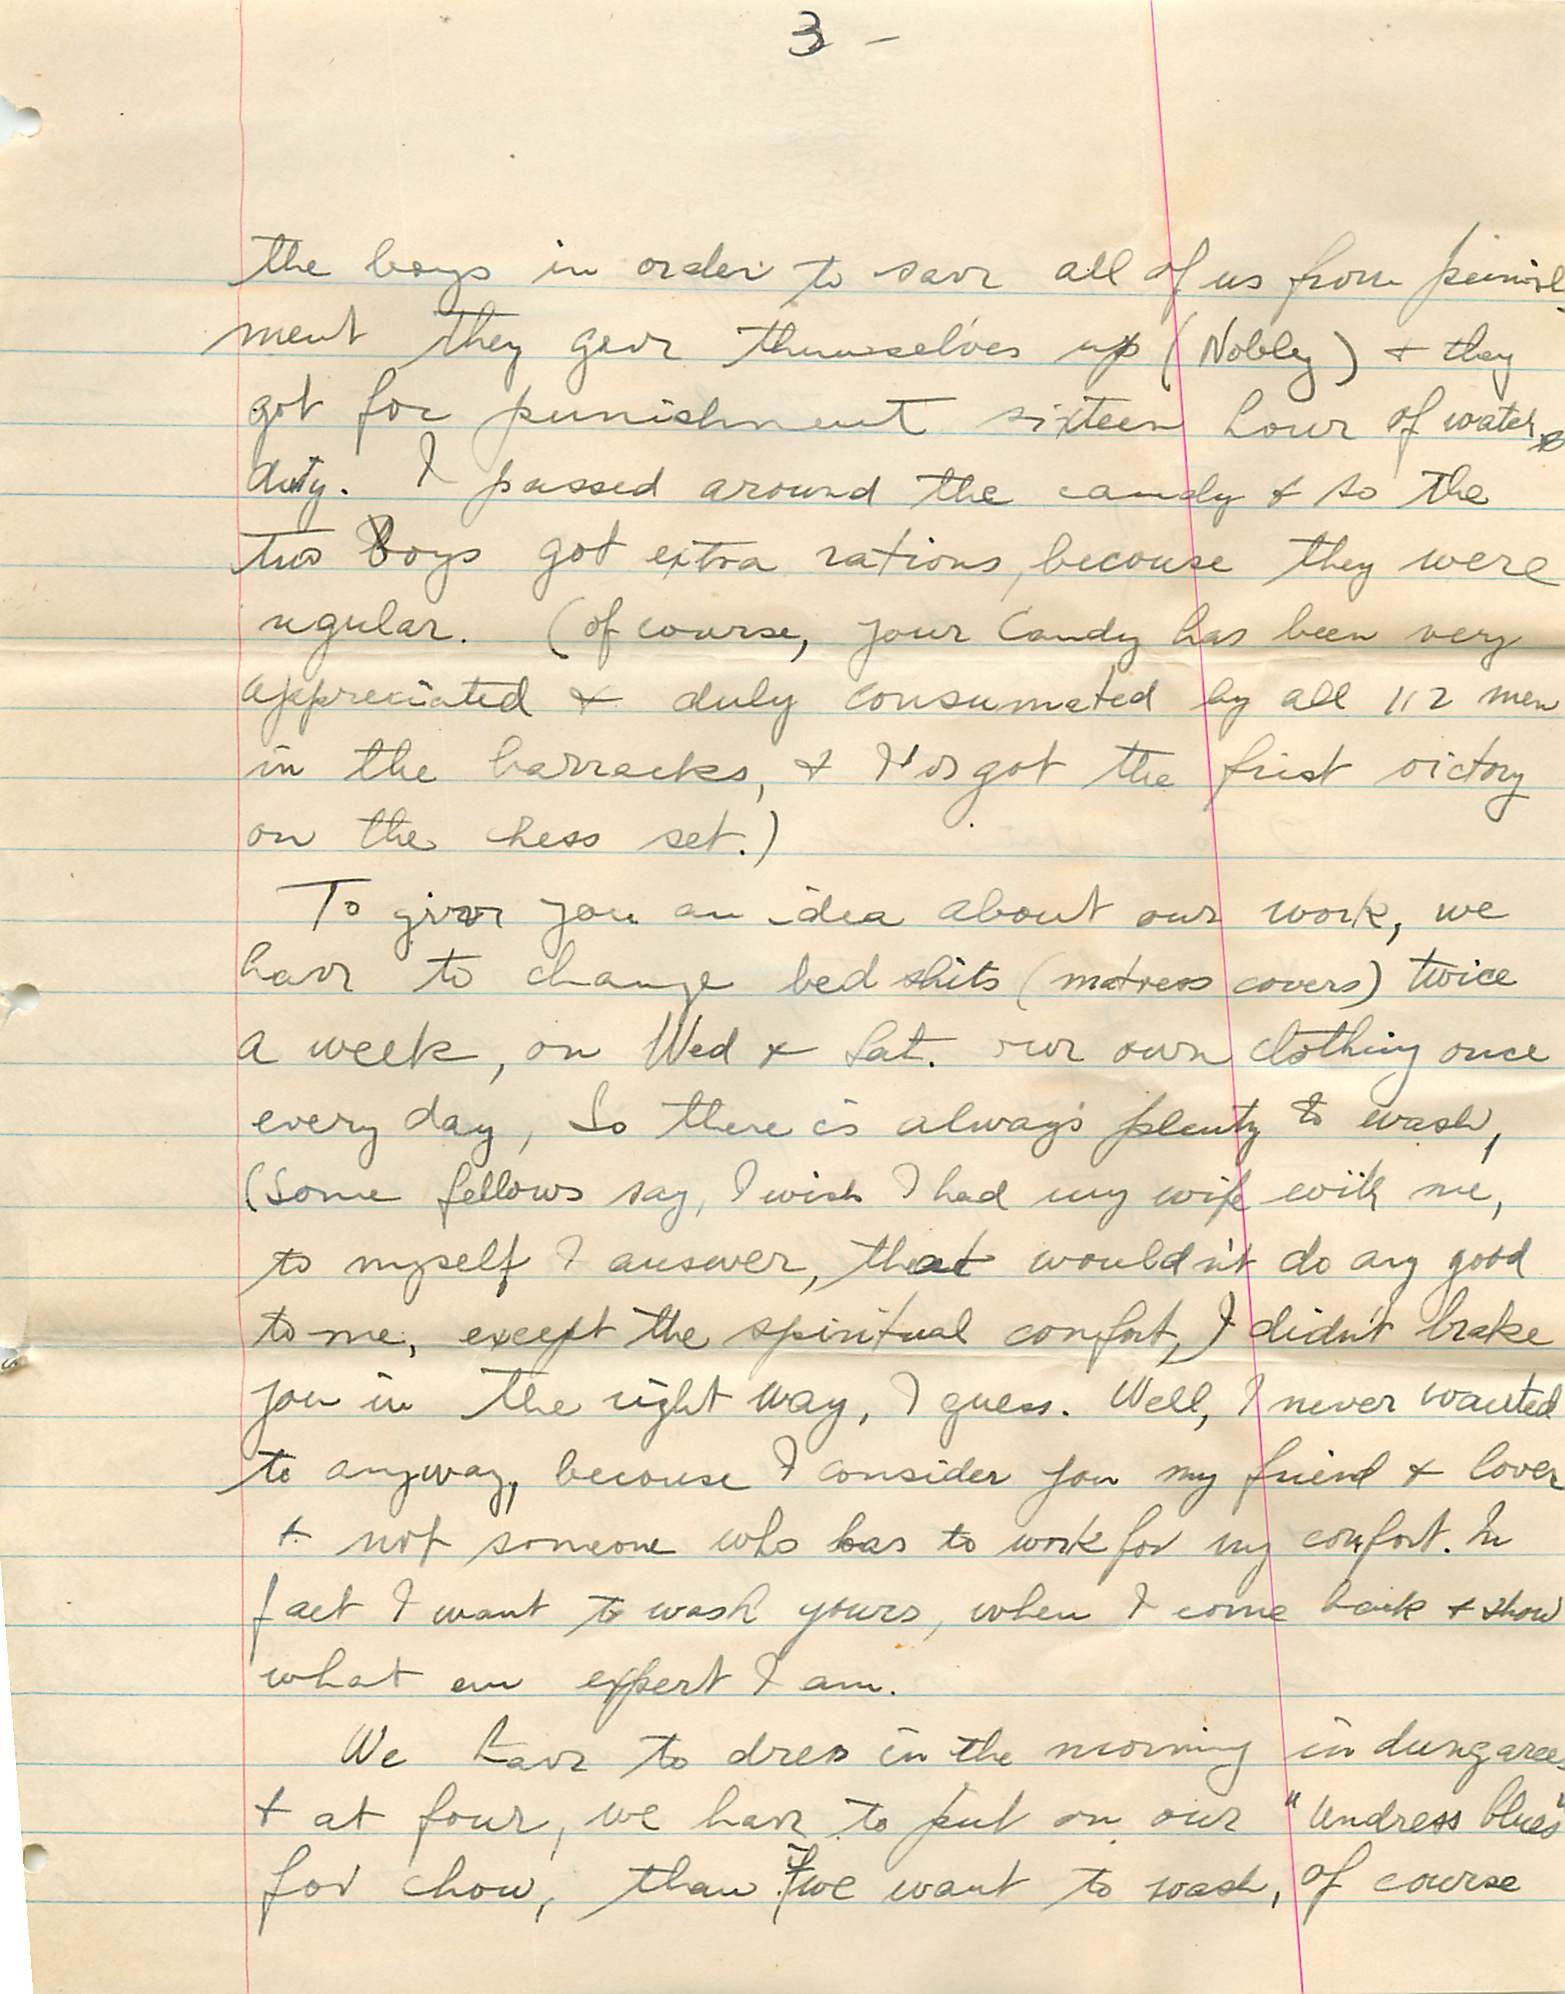 3 -
the boys in order to save all of us from punish-
ment they gave themselves up (Nobley) + they
got for punishment sixteen hour of water
duty. I passed around the candy + so the
two Boys got extra rations, becouse they were
regular. (of course, your Candy has been very
appreciated + duly consumated by all 112 men
in the barracks, + got the first victory
on the chess set.)
To give you an idea about our work, we
have to change bed shits (matress covers) twice
a week, on Wed + Sat. our own clothing once
every day, So there is always plenty to wash,
(Some fellows say, I wish I had my wife with me,
to myself I answer, that wouldn't do any good
to me, except the spiritual comfort,) I didn't brake
you in the right way, I guess. Well, I never wanted
to anyway, becouse I consider you my friend + lover
+ not someone who has to work for my comfort. In
fact I want to wash yours, when I come back + show
what an expert I am.
We have to dress in the morning in dungarees
+ at four, we have to put on our "Undress blues"
for chow, than if we want to wash, of course